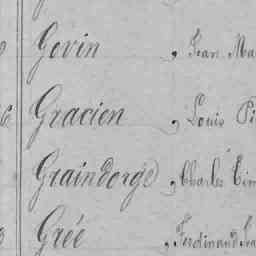 Govin , Jean Ma
Gracien , Louis Pi
Graindorge , Charles
Grée , Ferdinand Fra